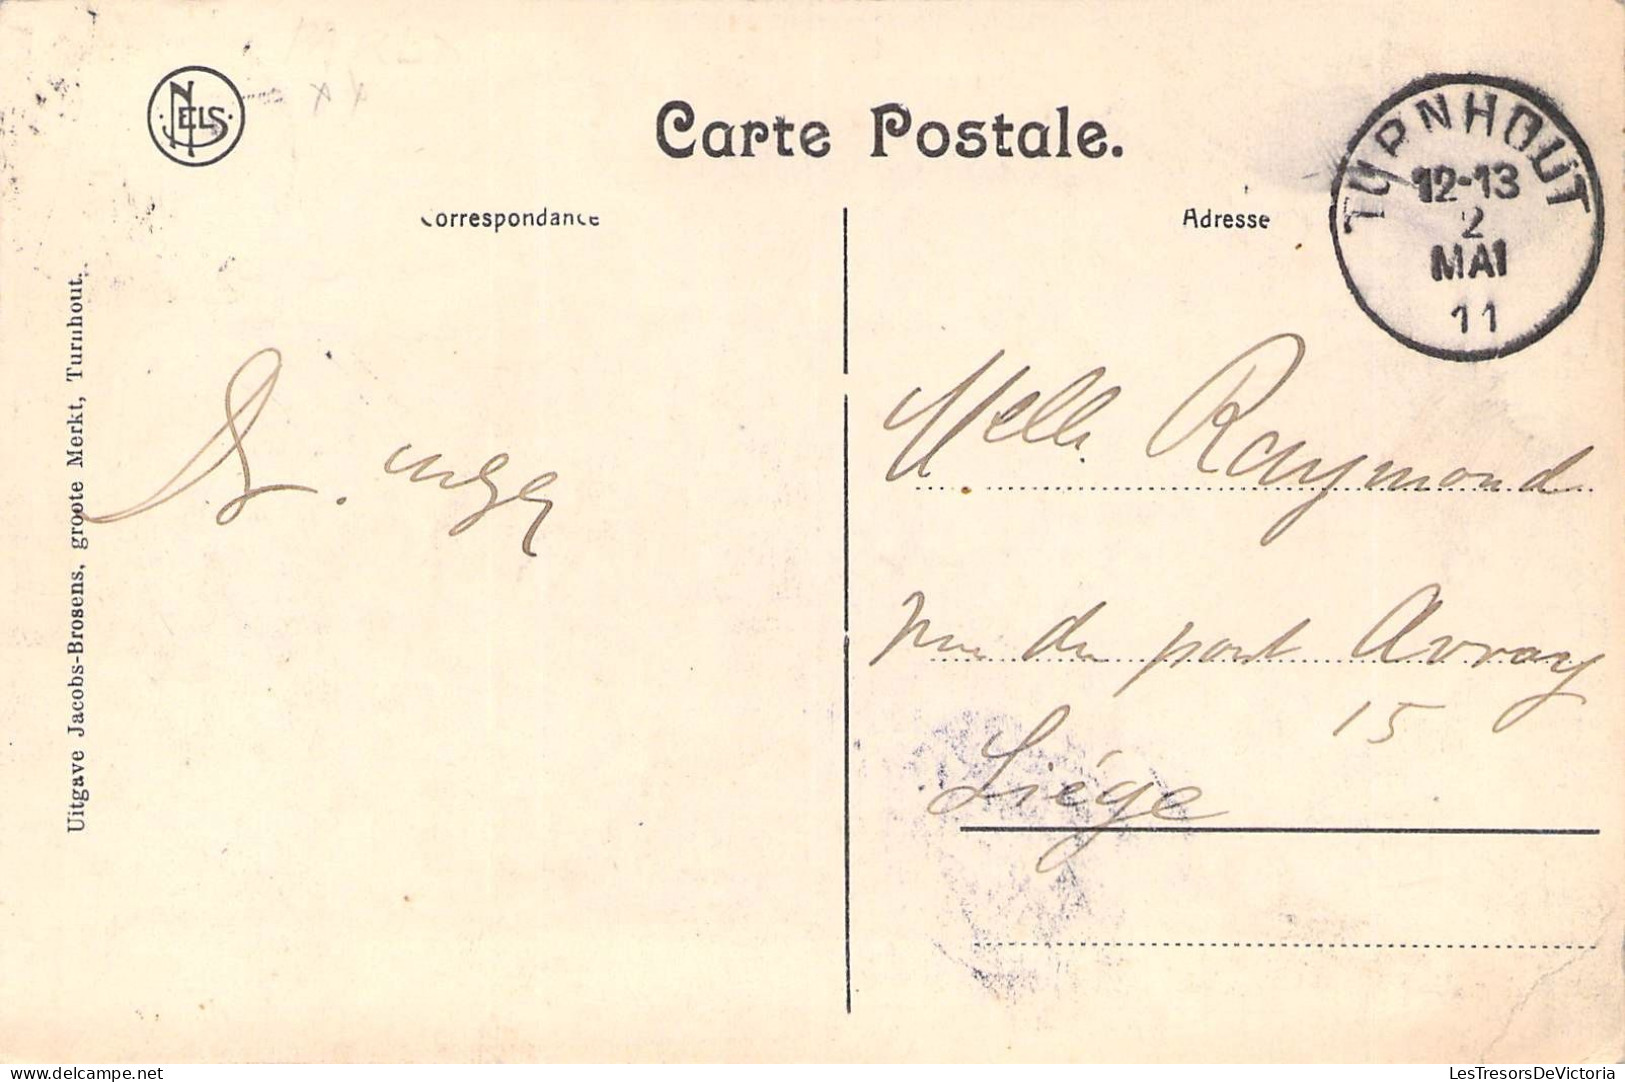 NELS
Carte Postale.
TURNHOUT
12-13
2
MAI
11
Correspondance
Adresse
Uitgave Jacobs-Brosens, groote Merkt, Turnhout.
Melle Raymond
rue du pont Avroy
15
Liége
LesTresorsDeVictoria